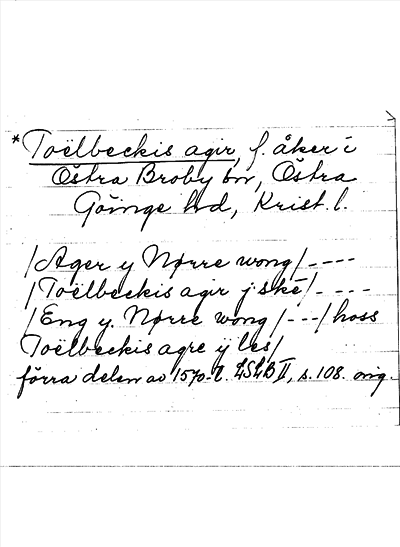 *Toëlbeckis agir, f. åker i
Östra Broby sn, Östra
Göinge hd, Krist. l.
/Ager y Nørre wong/----
/Toëlbeckis agir j skě/----
/Eng y. Nørre wong/---/hoss
Toëlbeckis agre ÿ les/
förra delen av 1570-t. LSLB II, s. 108. orig.